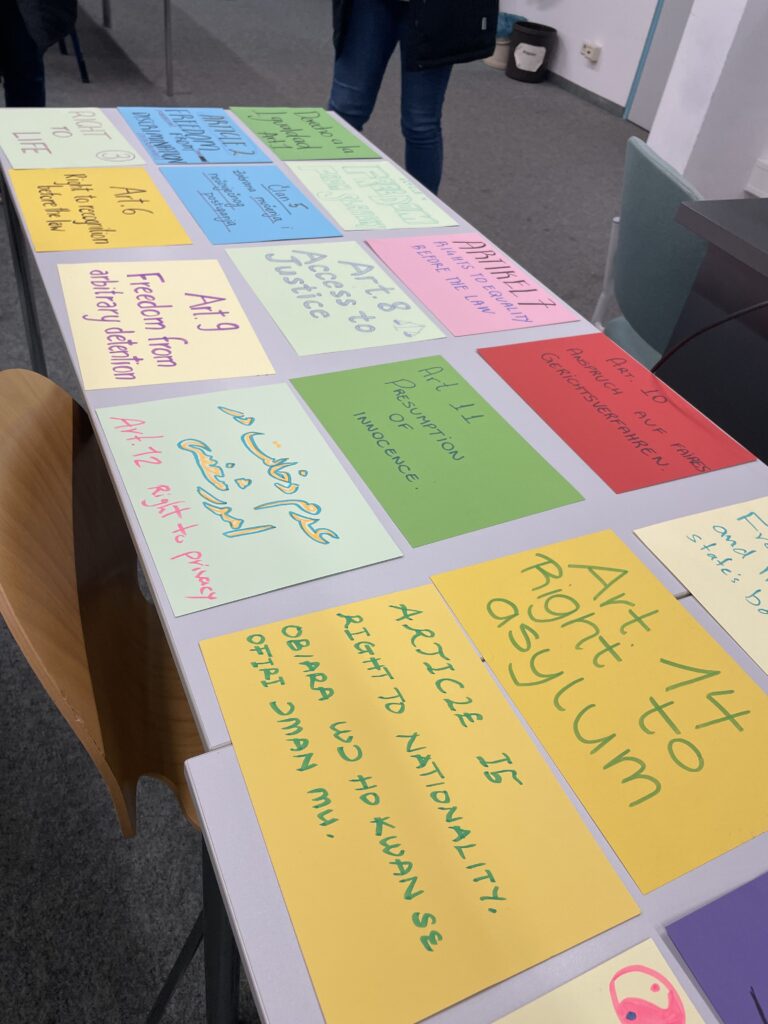 RIGHT ③
TO
LIFE
ARTICLE 2
FREEDOM
FROM
DISCRIMINATION
Derecho a la
Igualdad
Art 1
Art. 6
Right to recognition
before the law
Član 5
Art. 9
Freedom from
arbitrary detention
Art. 8
Access to
Justice
ARTIKEL 7
RIGHTS TO EQUALITY
BEFORE THE LAW
Art. 10
ANSPRUCH AUF FAIRES
GERICHTSVERFAHREN.
Art 11
PRESUMPTION
OF
INNOCENCE.
عدم دخالت در
امور شخصی
Art. 12 Right to privacy
and
state's bo
Art. 14
Right to
asylum
ARTICLE 15
RIGHT TO NATIONALITY.
OBIARA WƆ HO KWAN SE
OFIRI ƆMAN MU.